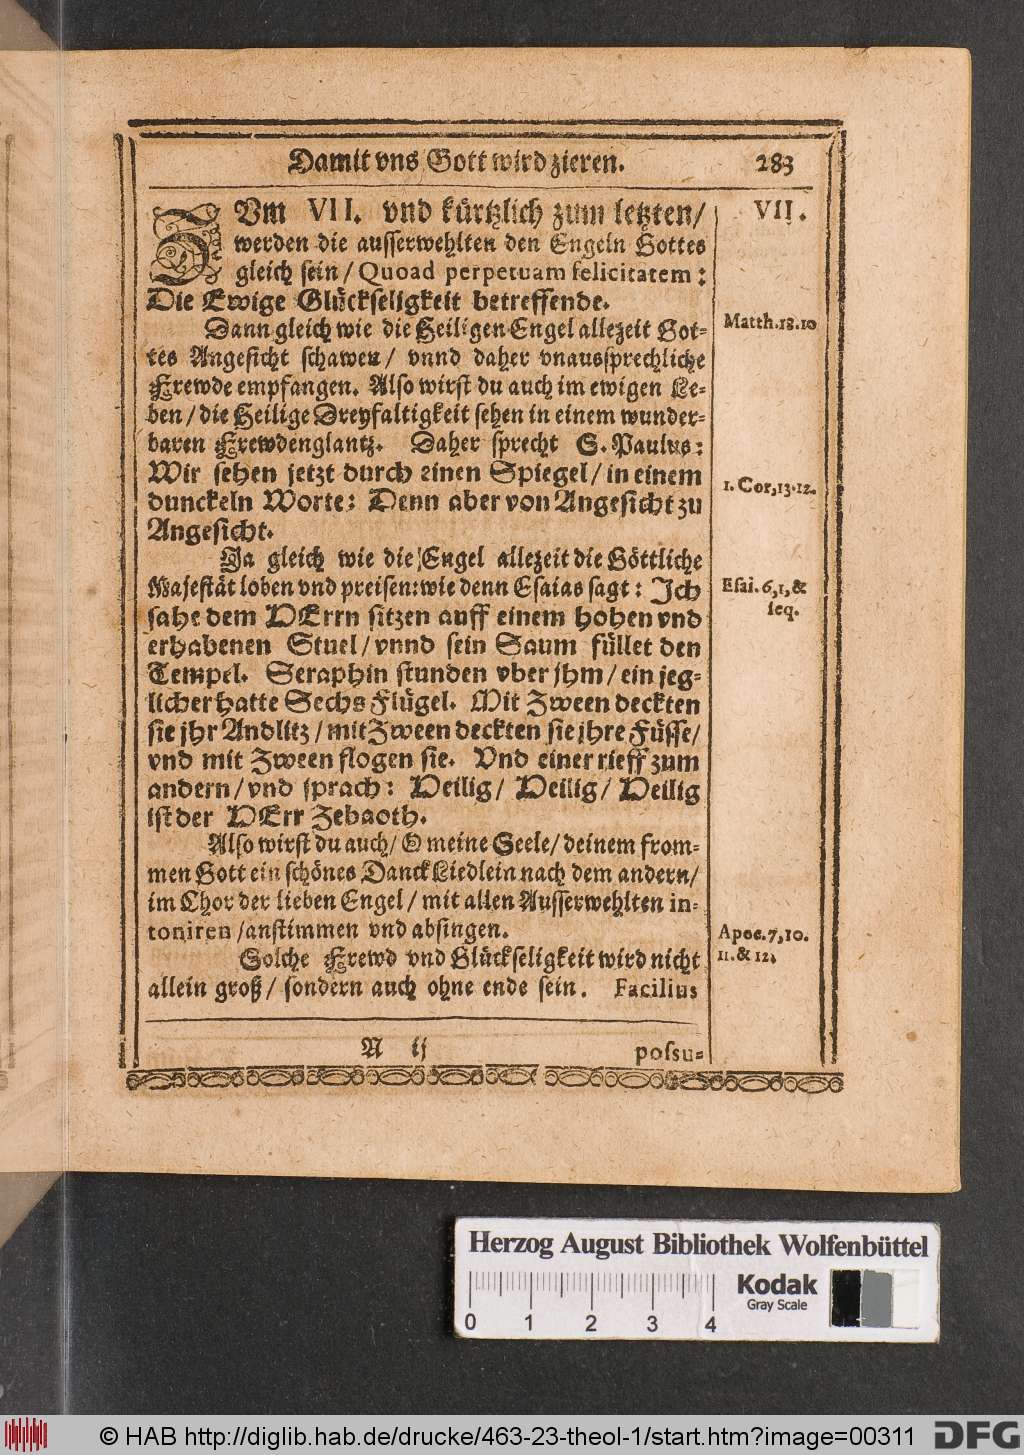 Damit vns Gott wird zieren. 283
ZVm VII. vnd kürtzlich zum letzten/
VII.
werden die ausserwehlten den Engeln Gottes
gleich sein/ Quoad perpetuam felicitatem:
Die Ewige Glückseligkeit betreffende.
Dann gleich wie die Heiligen Engel allezeit Got-
Matth.18.10
tes Angesicht schawen/ vnnd daher vnaussprechliche
Frewde empfangen. Also wirst du auch im ewigen Le-
ben/ die Heilige Dreyfaltigkeit sehen in einem wunder-
baren Frewdenglantz. Daher sprecht S. Paulus:
Wir sehen jetzt durch einen Spiegel/ in einem
1. Cor,13.12.
dunckeln Worte: Denn aber von Angesicht zu
Angesicht.
Ja gleich wie die Engel allezeit die Göttliche
Majestät loben vnd preisen: wie denn Esaias sagt: Ich
Esai. 6,1,&
seq.
sahe dem HErrn sitzen auff einem hohen vnd
erhabenen Stuel/ vnnd sein Saum füllet den
Tempel. Seraphin stunden vber jhm/ ein jeg-
licher hatte Sechs Flügel. Mit Zween deckten
sie jhr Andlitz/ mit Zween deckten sie jhre Füsse/
vnd mit Zween flogen sie. Vnd einer rieff zum
andern/ vnd sprach: Heilig/ Heilig/ Heilig
ist der HErr Zebaoth.
Also wirst du auch/ O meine Seele/ deinem from-
men Gott ein schönes Danck Liedlein nach dem andern/
im Chor der lieben Engel/ mit allen Ausserwehlten in-
toniren/ anstimmen vnd absingen.
Apoc.7,10.
11.& 12.
Solche Frewd vnd Glückseligkeit wird nicht
allein groß/ sondern auch ohne ende sein. Facilius
N ij
possu-
Herzog August Bibliothek Wolfenbüttel
Kodak
Gray Scale
0 1 2 3 4
© HAB http://diglib.hab.de/drucke/463-23-theol-1/start.htm?image=00311
DFG